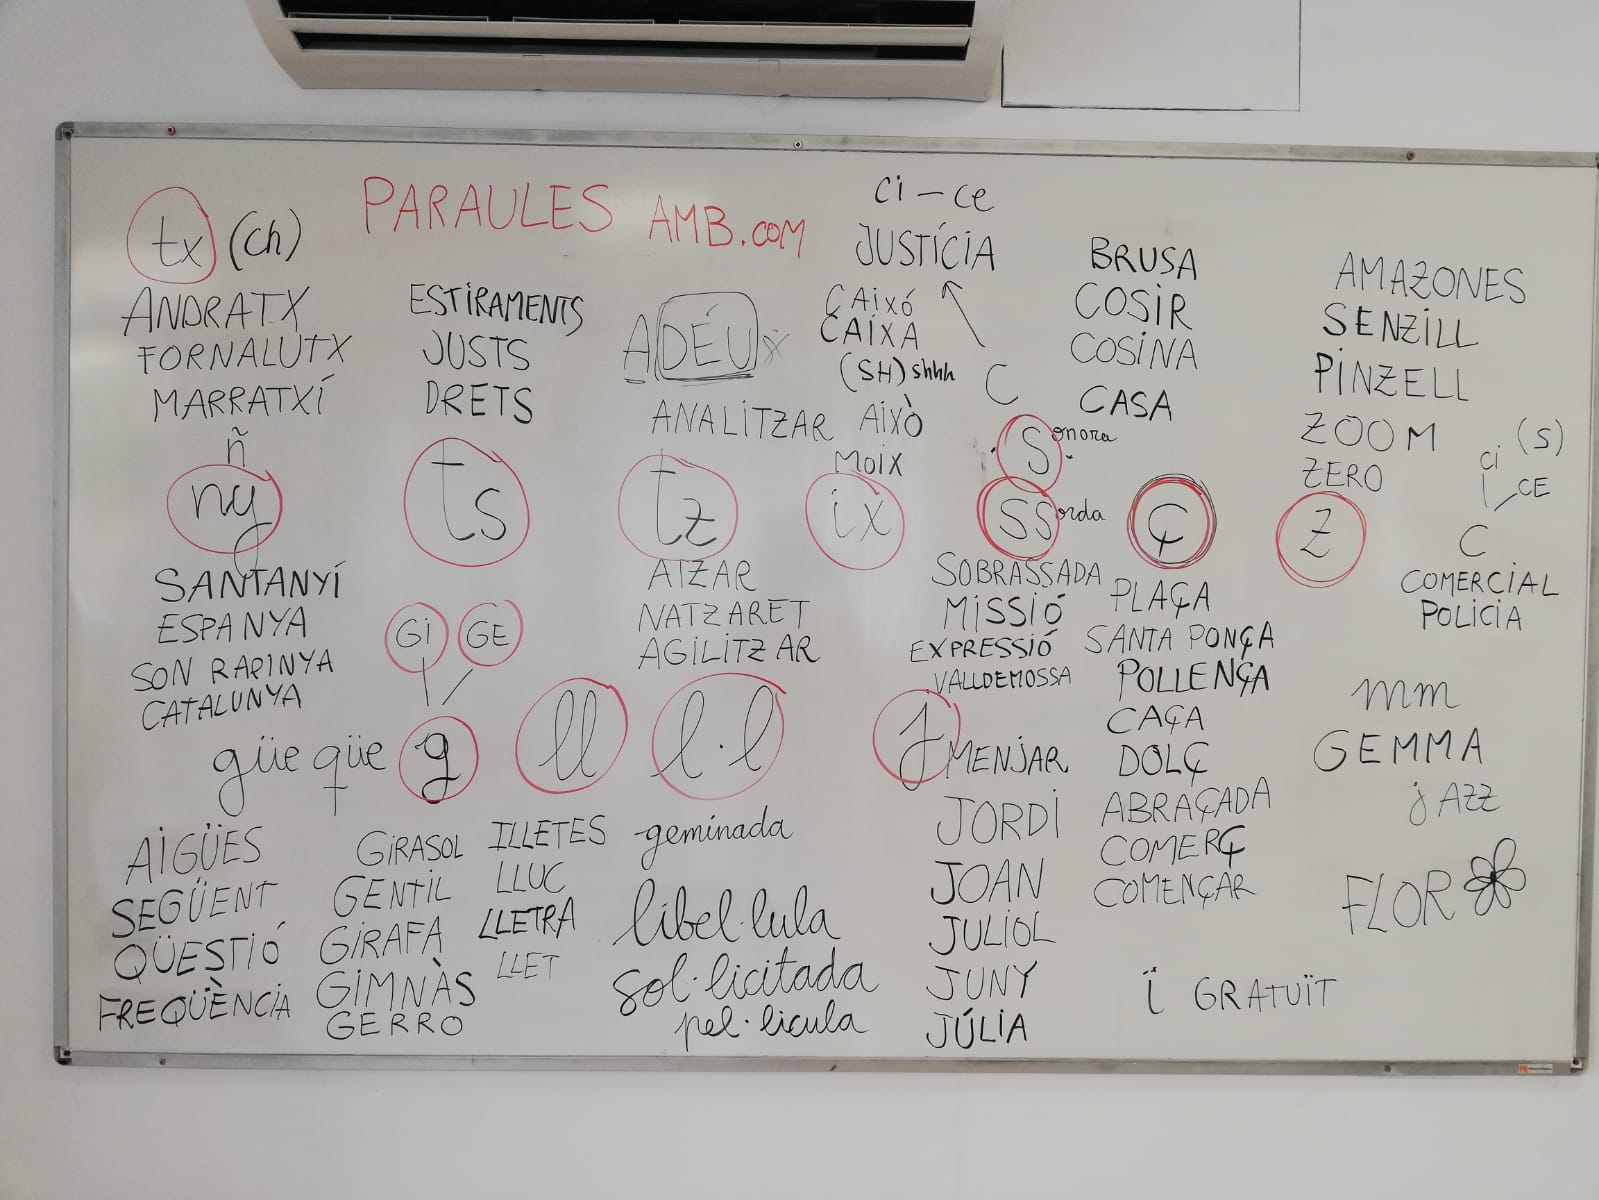 PARAULES AMB.COM
tx (ch)
ANDRATX
FORNALUTX
MARRATXÍ
ñ
ny
SANTANYÍ
ESPANYA
SON RAPINYA
CATALUNYA
ESTIRAMENTS
JUSTS
DRETS
ts
ADÉU
ANALITZAR
tz
ATZAR
NATZARET
AGILITZAR
ci - ce
JUSTÍCIA
C
CAIXÓ
CAIXA
(SH) shhh
AIXÒ
MOIX
ix
BRUSA
COSIR
COSINA
CASA
Sonora
SSorda
SOBRASSADA
MISSIÓ
EXPRESSIÓ
VALLDEMOSSA
Ç
PLAÇA
SANTA PONÇA
POLLENÇA
CAÇA
DOLÇ
ABRAÇADA
COMERÇ
COMENÇAR
AMAZONES
SENZILL
PINZELL
ZOOM
ZERO
Z
(S)
ci
CE
C
COMERCIAL
POLICIA
güe qüe
AIGÜES
SEGÜENT
QÜESTIÓ
FREQÜÈNCIA
GI GE
g
GIRASOL
GENTIL
GIRAFA
GIMNÀS
GERRO
ll
ILLETES
LLUC
LLETRA
LLET
l·l
geminada
libel·lula
sol·licitada
pel·licula
J
MENJAR
JORDI
JOAN
JULIOL
JUNY
JÚLIA
mm
GEMMA
jAZZ
FLOR
ï GRATUÏT